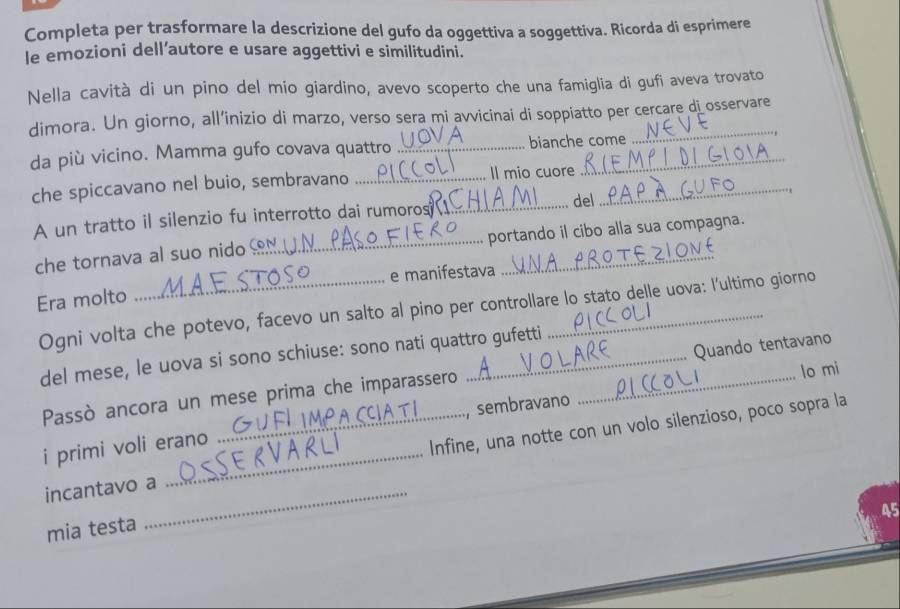 Completa per trasformare la descrizione del gufo da oggettiva a soggettiva. Ricorda di esprimere
le emozioni dell'autore e usare aggettivi e similitudini.
Nella cavità di un pino del mio giardino, avevo scoperto che una famiglia di gufi aveva trovato
dimora. Un giorno, all'inizio di marzo, verso sera mi avvicinai di soppiatto per cercare di osservare
da più vicino. Mamma gufo covava quattro UOVA bianche come NEVE,
che spiccavano nel buio, sembravano PICCOLI Il mio cuore RIEMPI DI GIOIA
A un tratto il silenzio fu interrotto dai rumorosi RICHIAMI del PAPÀ GUFO,
che tornava al suo nido CON UN PASO FIERO portando il cibo alla sua compagna.
Era molto MAESTOSO e manifestava UNA PROTEZIONE
Ogni volta che potevo, facevo un salto al pino per controllare lo stato delle uova: l'ultimo giorno
del mese, le uova si sono schiuse: sono nati quattro gufetti PICCOLI
Passò ancora un mese prima che imparassero A VOLARE Quando tentavano
i primi voli erano GUFI IMPACCIATI, sembravano PICCOLI Io mi
incantavo a OSSERVARLI Infine, una notte con un volo silenzioso, poco sopra la
mia testa
45